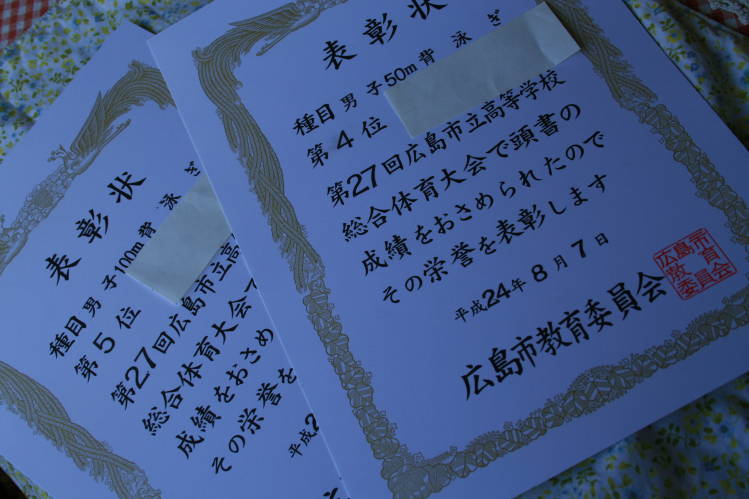 表彰状
種目 男子50m背泳ぎ
第4位
第27回広島市立高等学校
総合体育大会で頭書の
成績をおさめられたので
その栄誉を表彰します
平成24年8月7日
広島市教育委員会
広島市教育委員会
表彰状
種目 男子100m背泳ぎ
第5位
第27回広島市立高
総合体育大会で
成績をおさめ
その栄誉を
平成2